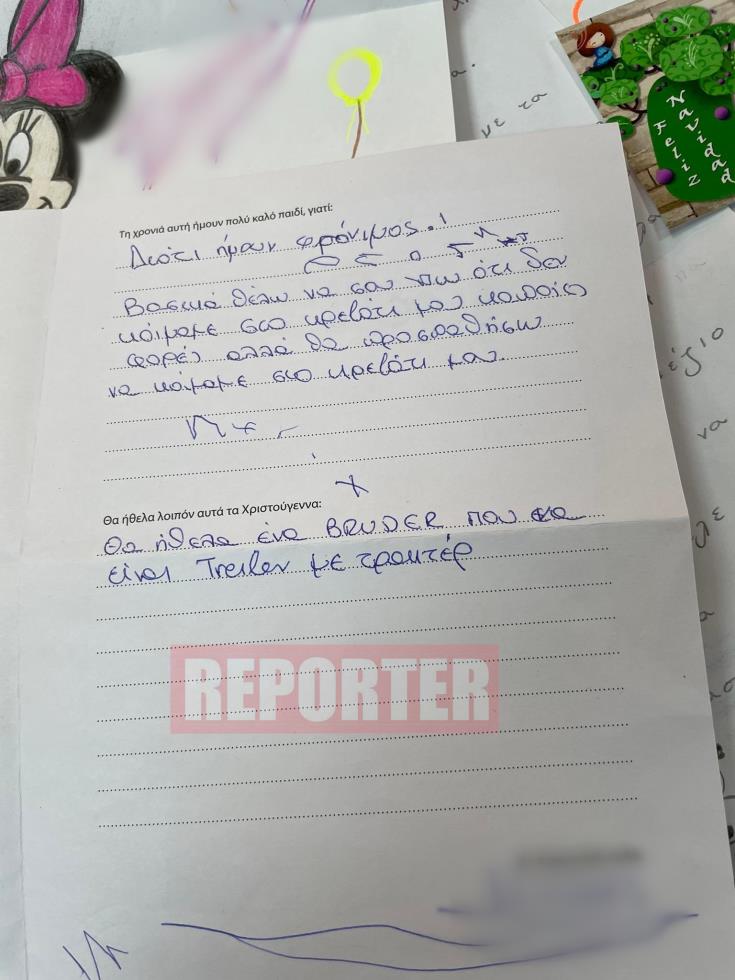 Feliz
Navidad
με τα
Τη χρονιά αυτή ήμουν πολύ καλό παιδί, γιατί:
Διότι ήμουν φρόνιμος.!
Βασικά θέλω να σου πω ότι δεν
κοίμαμε στο κρεβάτι μου κάποιες
φορές αλλά θα προσπαθήσω
να κοίμαμε στο κρεβάτι μου.
να
Θα ήθελα λοιπόν αυτά τα Χριστούγεννα:
Θα ήθελα ένα BRUDER που να
είναι Treilen με τρακτέρ
REPORTER